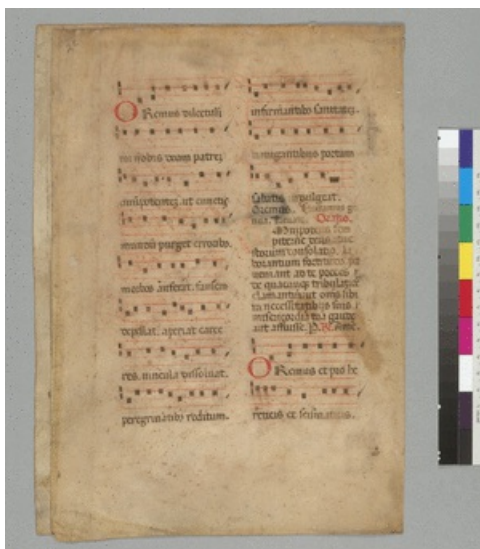 Oremus dilectissimi
nobis deum patrem
omnipotentem ut cunctis
mundum purget erroribus.
morbos auferat. famem
depellat. aperiat carce
res. vincula dissoluat.
peregrinantibus reditum.
infirmantibus sanitatem.
nauigantibus portum
salutis indulgeat.
Oremus.
Oratio.
Omnipotens sem
piterne deus
storum consolatio. la
borantium fortitudo. per
ueniant ad te preces
de quacumque tribulatione
clamantium. ut omnes sibi
in necessitatibus suis
misericordiam tuam gaude
ant affuisse. P.
Oremus et pro he
reticis et scismaticis.